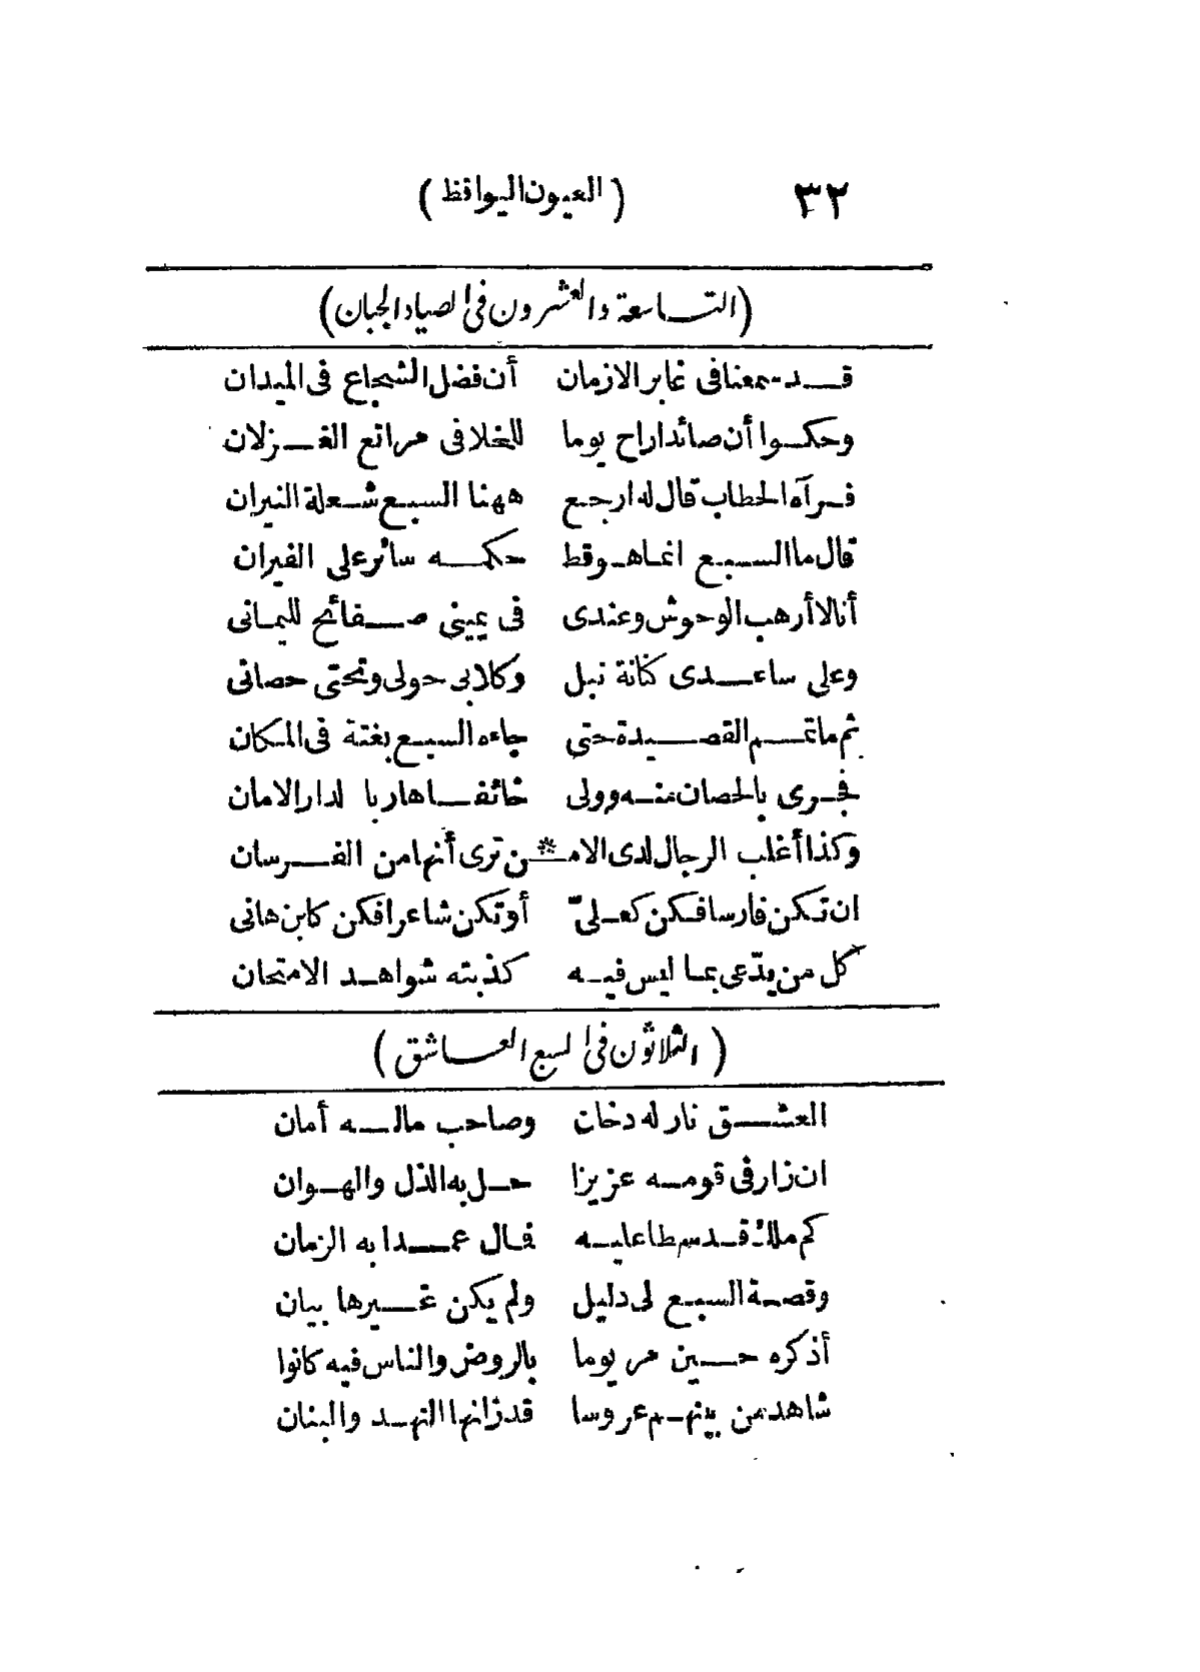 ٣٢ (العيون اليواقظ)
(التاسعة والعشرون في الصياد الجبان)
قد سمعنا في غابر الازمان أن فضل الشجاع في الميدان
وحكوا أن صائدا راح يوما للخلا في مراتع الغزلان
فرآه الحطاب قال له ارجع ههنا السبع شعلة النيران
قال ما السبع انما هو قط حكمه سائر على الفيران
أنا لا أرهب الوحوش وعندي في يميني صفائح لليماني
وعلى ساعدي كنانة نبل وكلابي حولي وتحتي حصاني
ثم ما تم القصيدة حتى جاءه السبع بغتة في المكان
فجرى بالحصان منه وولى خائفا هاربا لدار الامان
وكذا أغلب الرجال لدى الامـ * ـن ترى أنها من الفرسان
ان تكن فارسا فكن كعليّ أو تكن شاعرا فكن كابن هاني
كل من يدّعى بما ليس فيه كذبته شواهد الامتحان
(الثلاثون في السبع العاشق)
العشق نار له دخان وصاحب ماله أمان
ان زار في قومه عزيزا حل به الذل والهوان
كم ملك قد سطا عليه فال عمدا به الزمان
وقصة السبع لي دليل ولم يكن غيرها بيان
أذكره حين مر يوما بالروض والناس فيه كانوا
شاهد من بينهم عروسا قد زانها النهد والبنان